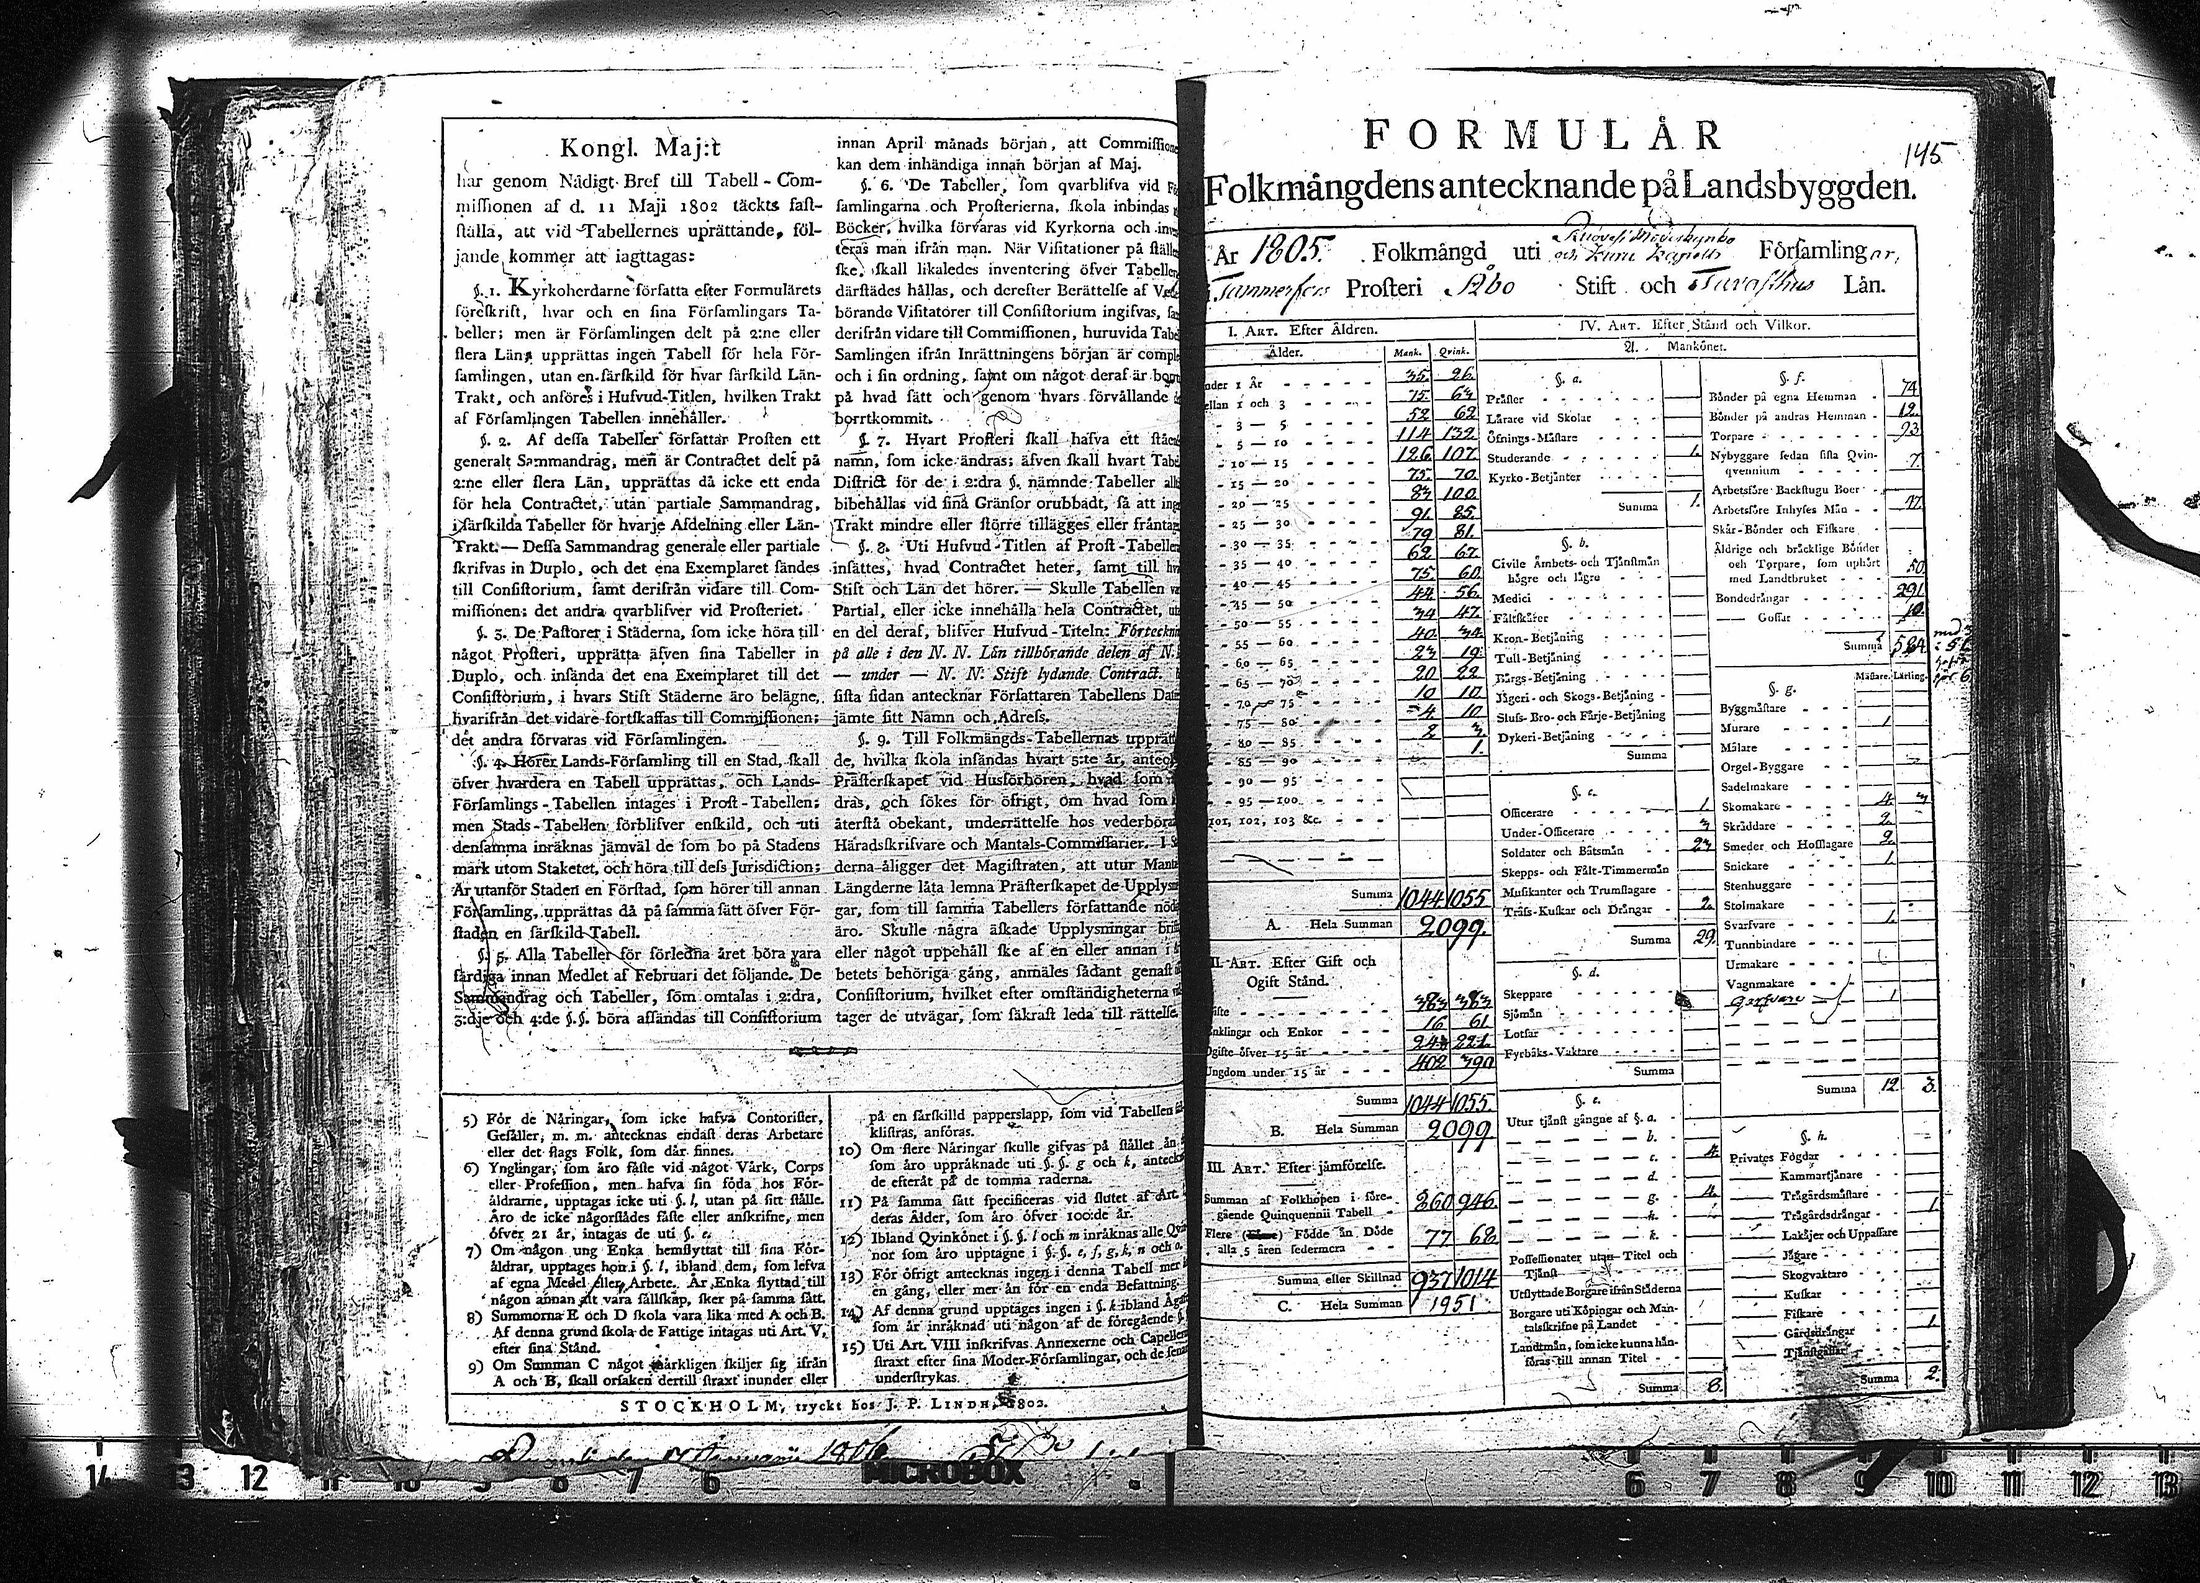 Kongl. Maj:t
har genom Nådigt Bref till Tabell-Com-
missionen af d. 11 Maji 1802 täckts fast-
ställa, att vid Tabellernes uprättande, föl-
jande kommer att iagttagas:
§. 1. Kyrkoherdarne författa efter Formulärets
föreskrift, hvar och en sina Församlingars Ta-
beller; men är Församlingen delt på 2:ne eller
flera Län, upprättas ingen Tabell för hela För-
samlingen, utan en särskild för hvar särskild Län-
Trakt, och anföres i Hufvud-Titlen, hvilken Trakt
af Församlingen Tabellen innehåller.
§. 2. Af dessa Tabeller författar Prosten ett
generalt Sammandrag, men är Contractet delt på
2:ne eller flera Län, upprättas då icke ett enda
för hela Contractet, utan partiale Sammandrag,
i särskilda Tabeller för hvarje Afdelning eller Län-
Trakt. — Dessa Sammandrag generale eller partiale
skrifvas in Duplo, och det ena Exemplaret sändes
till Consistorium, samt derifrån vidare till Com-
missionen; det andra qvarblifver vid Prosteriet.
§. 3. De Pastorer i Städerna, som icke höra till
något Prosteri, upprätta äfven sina Tabeller in
Duplo, och insända det ena Exemplaret till det
Consistorium, i hvars Stift Städerne äro belägne,
hvarifrån det vidare fortskaffas till Commissionen;
det andra förvaras vid Församlingen.
§. 4. Hörer Lands-Församling till en Stad, skall
öfver hvardera en Tabell upprättas, och Lands-
Församlings-Tabellen intages i Prost-Tabellen;
men Stads-Tabellen förblifver enskild, och uti
densamma inräknas jämväl de som bo på Stadens
mark utom Staketet, och höra till dess Jurisdiction;
Är utanför Staden en Förstad, som hörer till annan
Församling, upprättas då på samma sätt öfver För-
staden en särskild Tabell.
§. 5. Alla Tabeller för förledna året böra vara
färdiga innan Medlet af Februari det följande. De
Sammandrag och Tabeller, som omtalas i 2:dra,
3:dje och 4:de §.§. böra afsändas till Consistorium
innan April månads början, att
kan dem inhändiga innan början af Maj.
§. 6. De Tabeller, som qvarblifva vid
samlingarna och Prosterierna, skola inbindas
Böcker, hvilka förvaras vid Kyrkorna och
teras man ifrån man. När Visitationer på
ske, skall likaledes inventering öfver
därstädes hållas, och derefter Berättelse af
börande Visitatorer till Consistorium ingifvas,
derifrån vidare till Commissionen, huruvida
Samlingen ifrån Inrättningens början är
och i sin ordning, samt om något deraf är
på hvad sätt och genom hvars förvållande
borrtkommit.
§. 7. Hvart Prosteri skall hafva ett
namn, som icke ändras; äfven skall hvart
District för de i 2:dra §. nämnde Tabeller
bibehållas vid sina Gränsor orubbadt, så att
Trakt mindre eller större tillägges eller
§. 8. Uti Hufvud-Titlen af Prost-
insättes, hvad Contractet heter, samt till
Stift och Län det hörer. — Skulle Tabellen
Partial, eller icke innehålla hela Contractet,
en del deraf, blifver Hufvud-Titeln:
på alle i den N. N. Län tillhörande delen af N.
— under — N. N. Stift lydande Contract.
sista sidan antecknar Författaren Tabellens
jämte sitt Namn och Adress.
§. 9. Till Folkmängds-Tabellernas
de, hvilka skola insändas hvart 5:te år,
Prästerskapet vid Husförhören, hvad som
dras, och sökes för öfrigt, om hvad som
återstå obekant, underrättelse hos
Häradsskrifvare och Mantals-Commissarier.
derna åligger det Magistraten, att utur
Längderne låta lemna Prästerskapet de
gar, som till samma Tabellers författande
äro. Skulle några äskade Upplysningar
eller något uppehåll ske af en eller annan i
betets behöriga gång, anmäles sådant
Consistorium, hvilket efter omständigheterna
tager de utvägar, som säkrast leda till rättelse.
5) För de Näringar, som icke hafva Contorister,
Gesäller, m. m. antecknas endast deras Arbetare
eller det slags Folk, som där finnes.
6) Ynglingar, som äro fäste vid något Värk, Corps
eller Profession, men hafva sin föda hos För-
äldrarne, upptagas icke uti §. l, utan på sitt ställe.
Äro de icke någorstädes fäste eller anskrifne, men
öfver 21 år, intagas de uti §. e.
7) Om någon ung Enka hemflyttat till sina För-
äldrar, upptages hon i §. l, ibland dem, som lefva
af egna Medel eller Arbete. Är Enka flyttad till
någon annan att vara sällskap, sker på samma sätt.
8) Summorna E och D skola vara lika med A och B.
Af denna grund skola de Fattige intagas uti Art. V,
efter sina Stånd.
9) Om Summan C något märkligen skiljer sig ifrån
A och B, skall orsaken dertill straxt inunder eller
på en särskilld papperslapp, som vid Tabellen
klistras, anföras.
10) Om flere Näringar skulle gifvas på stället än
som äro uppräknade uti §. §. g och k,
de efteråt på de tomma raderna.
11) På samma sätt specificeras vid slutet af Art.
deras Ålder, som äro öfver 100:de år.
12) Ibland Qvinkönet i §. §. l och m inräknas alle
nor som äro upptagne i §. §. e, f, g, h, n och o.
13) För öfrigt antecknas ingen i denna Tabell mer
en gång, eller mer än för en enda Befattning.
14) Af denna grund upptages ingen i §. k ibland
som är inräknad uti någon af de föregående
15) Uti Art. VIII inskrifvas Annexerne och
straxt efter sina Moder-Församlingar, och de
understrykas.
STOCKHOLM, tryckt hos J. P. LINDH, 1802.
1806
MICROBOX
FORMULÄR
145
Folkmängdens antecknande på Landsbyggden.
År 1805. Folkmängd uti Ruovesi Moderkyrko Församlingar,
och Kuru Kapells
Tammerfors Prosteri Åbo Stift och Tavasthus Län.
I. ART. Efter Åldren.
Ålder. Mank. Qvink.
under 1 År 35. 26.
mellan 1 och 3 75. 63
3 — 5 52 62
5 — 10 114 132
10 — 15 126 107
15 — 20 75. 70.
20 — 25 83 100
25 — 30 91 85.
30 — 35 79 81.
35 — 40 62 67.
40 — 45 75. 60.
45 — 50 44 56.
50 — 55 34 47.
55 — 60 40 34.
60 — 65 23 19.
65 — 70 20 22
70 — 75 10 10
75 — 80 4. 10
80 — 85 2 3.
85 — 90 1.
90 — 95
95 — 100
101, 102, 103 &c.
Summa 1044 1055
A. Hela Summan 2099.
II. ART. Efter Gift och
Ogift Stånd.
Gifte 383 383
Enklingar och Enkor 16 61
Ogifte öfver 15 år 243 221.
Ungdom under 15 år 402 390
Summa 1044 1055.
B. Hela Summan 2099
III. ART. Efter jämförelse.
Summan af Folkhopen i före-
gående Quinquennii Tabell 860 946.
Flere Födde än Döde
alla 5 åren sedermera 77 68
Summa eller Skillnad 937 1014
C. Hela Summan 1951
IV. ART. Efter Stånd och Vilkor.
A. Mankönet.
§. a.
Präster
Lärare vid Skolar
Öfnings-Mästare
Studerande 1.
Kyrko-Betjänter
Summa 1.
§. b.
Civile Ämbets- och Tjänstmän
högre och lägre
Medici
Fältskärer
Kron-Betjäning
Tull-Betjäning
Bärgs-Betjäning
Jägeri- och Skogs-Betjäning
Sluss- Bro- och Färje-Betjäning
Dykeri-Betjäning
Summa
§. c.
Officerare 1.
Under-Officerare 3
Soldater och Båtsmän 23
Skepps- och Fält-Timmermän
Musikanter och Trumslagare
Träss-Kuskar och Drängar 2.
Summa 29.
§. d.
Skeppare
Sjömän
Lotsar
Fyrbåks-Vaktare
Summa
§. e.
Utur tjänst gångne af §. a.
b.
c. 4.
d.
g. 4.
h.
k.
Possessionater utan Titel och
Tjänst
Utflyttade Borgare ifrån Städerna
Borgare uti Köpingar och Man-
talsskrifne på Landet
Landtmän, som icke kunna hän-
föras till annan Titel
Summa 8.
§. f.
Bönder på egna Hemman 74
Bönder på andras Hemman 12.
Torpare 93
Nybyggare sedan sista Qvin-
qvennium 7.
Arbetsföre Backstugu Boer
Arbetsföre Inhyses Män 47.
Skär-Bönder och Fiskare
Äldrige och bräcklige Bönder
och Torpare, som uphört
med Landtbruket 50.
Bondedrängar 291
Gossar 10.
Summa 584.
§. g. Mästare. Lärling.
Byggmästare
Murare 1
Målare
Orgel-Byggare
Sadelmakare
Skomakare 4. 3
Skräddare 2.
Smeder och Hofslagare 2.
Snickare 1.
Stenhuggare
Stolmakare
Svarfvare 1.
Tunnbindare
Urmakare
Vagnmakare
Garfvare 1
Summa 12. 3.
§. h.
Privates Fogdar
Kammartjänare
Trägårdsmästare
Trägårdsdrängar 1.
Lakäjer och Uppassare
Jägare
Skogvaktare
Kuskar
Fiskare
Gårdsdrängar 1.
Tjänstgåssar
Summa 2.
14 13 12 11 10 9 8 7 6
6 7 8 9 10 11 12 13